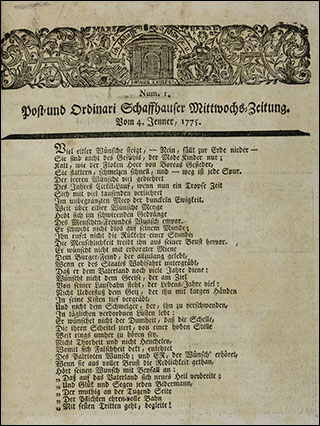 Num. 1.
Post-und Ordinari Schaffhauser Mittwochs-Zeitung.
Vom 4. Jenner, 1775.
Viel eitler Wünsche steigt, — Nein, fällt zur Erde nieder —
Sie sind nicht des Gefühls, der Mode Kinder nur;
Kalt, wie der Floken Heer von Boreas Gefieder,
Sie flattern, schmelzen schnell, und — weg ist jede Spur.
Der leeren Wünsche viel gebiehret
Des Jahres Cirkel-Lauf, wenn nun ein Tropfe Zeit
Sich mit viel tausenden verliehret
Im unbegränzten Meer der dunkeln Ewigkeit.
Weit über eitler Wünsche Menge
Hebt sich im schwirrenden Gedränge
Des Menschen-Freundes Wunsch empor.
Er schwebt nicht blos auf seinem Munde;
Ihn rufet nicht die Rükkehr einer Stunde;
Die Menschlichkeit treibt ihn aus seiner Brust hervor.
Er wünscht nicht mit erborgter Miene
Dem Bürger-Feind, der allzulang gelebt,
Wenn er des Staats Wohlfahrt untergräbt,
Daß er dem Vaterland noch viel Jahre diene:
Wünscht nicht dem Greise, der am Ziel
Von seiner Laufbahn steht, der Lebens-Jahre viel:
Nicht Ueberfluß dem Geiz, der ihn mit kargen Händen
In seine Kisten tief vergräbt,
Und nicht dem Schwelger, der, ihn zu verschwenden,
In täglichen verdorbnen Lüsten lebt:
Er wünschet nicht der Dumheit, daß die Schelle,
Die ihren Scheitel ziert, von einer hohen Stelle
Weit rings umher zu hören sey.
Nicht Thorheit und nicht Heucheley,
Womit sich Falschheit dekt, entehret
Des Patrioten Wunsch; und ER, der Wünsch' erhöret,
Wenn sie aus voller Brust die Redlichkeit gethan,
Hört seinen Wunsch mit Beyfall an:
„ Daß auf das Vaterland sich neues Heil verbreite;
„ Und Glük und Segen jeden Bidermann,
„ Der muthig an der Tugend Seite
„ Der Pflichten ehren-volle Bahn
„ Mit festen Tritten geht, begleite!